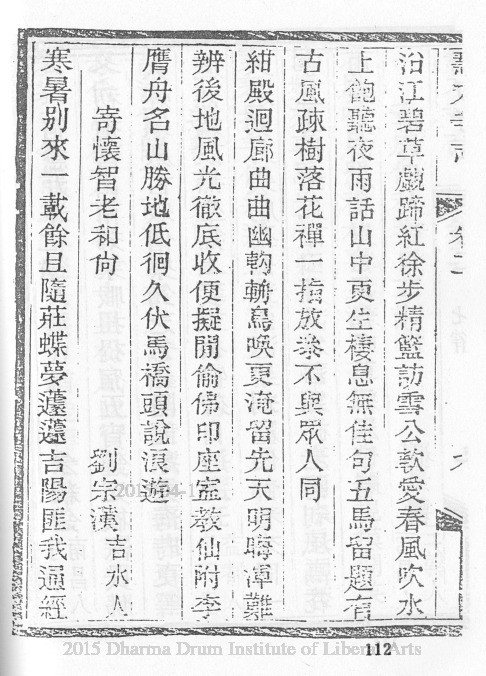 沿江碧草戲蹄紅徐步精籃訪雲公欵愛春風吹水
上飽聽夜雨話山中更生棲息無佳句五馬留題有
古風疎樹落花禪一指放叅不與眾人同
紺殿迴廊曲曲幽軥輈鳥喚更淹留先天明晦渾難
辨後地風光徹底收便擬閒偷佛印座寍教仙附李
膺舟名山勝地低徊久伏馬橋頭說浪遊
寄懷智老和尙
劉宗漢 吉水人
寒暑别來一載餘且隨莊蝶夢蘧蘧吉陽匪我逼經
卷二
112
2015 Dharma Drum Institute of Liberal Arts